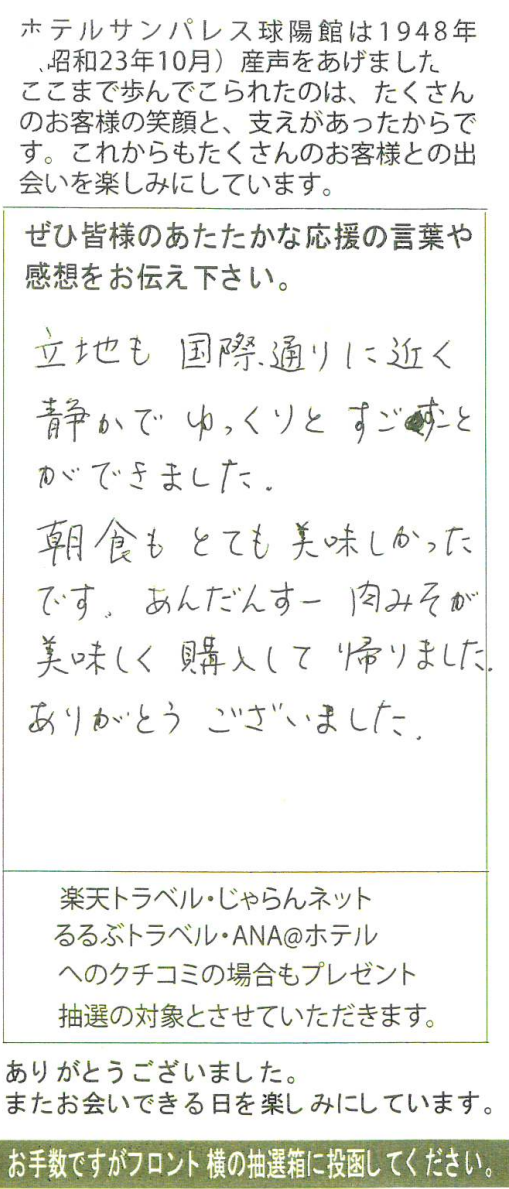 ホテルサンパレス球陽館は1948年
（昭和23年10月）産声をあげました
ここまで歩んでこられたのは、たくさん
のお客様の笑顔と、支えがあったからで
す。これからもたくさんのお客様との出
会いを楽しみにしています。
ぜひ皆様のあたたかな応援の言葉や
感想をお伝え下さい。
立地も 国際通りに近く
静かで ゆっくりと すごすこと
ができました.
朝食も とても 美味しかった
です. あんだんすー 肉みそが
美味しく 購入して 帰りました.
ありがとう ございました.
楽天トラベル・じゃらんネット
るるぶトラベル・ANA@ホテル
へのクチコミの場合もプレゼント
抽選の対象とさせていただきます。
ありがとうございました。
またお会いできる日を楽しみにしています。
お手数ですがフロント横の抽選箱に投函してください。